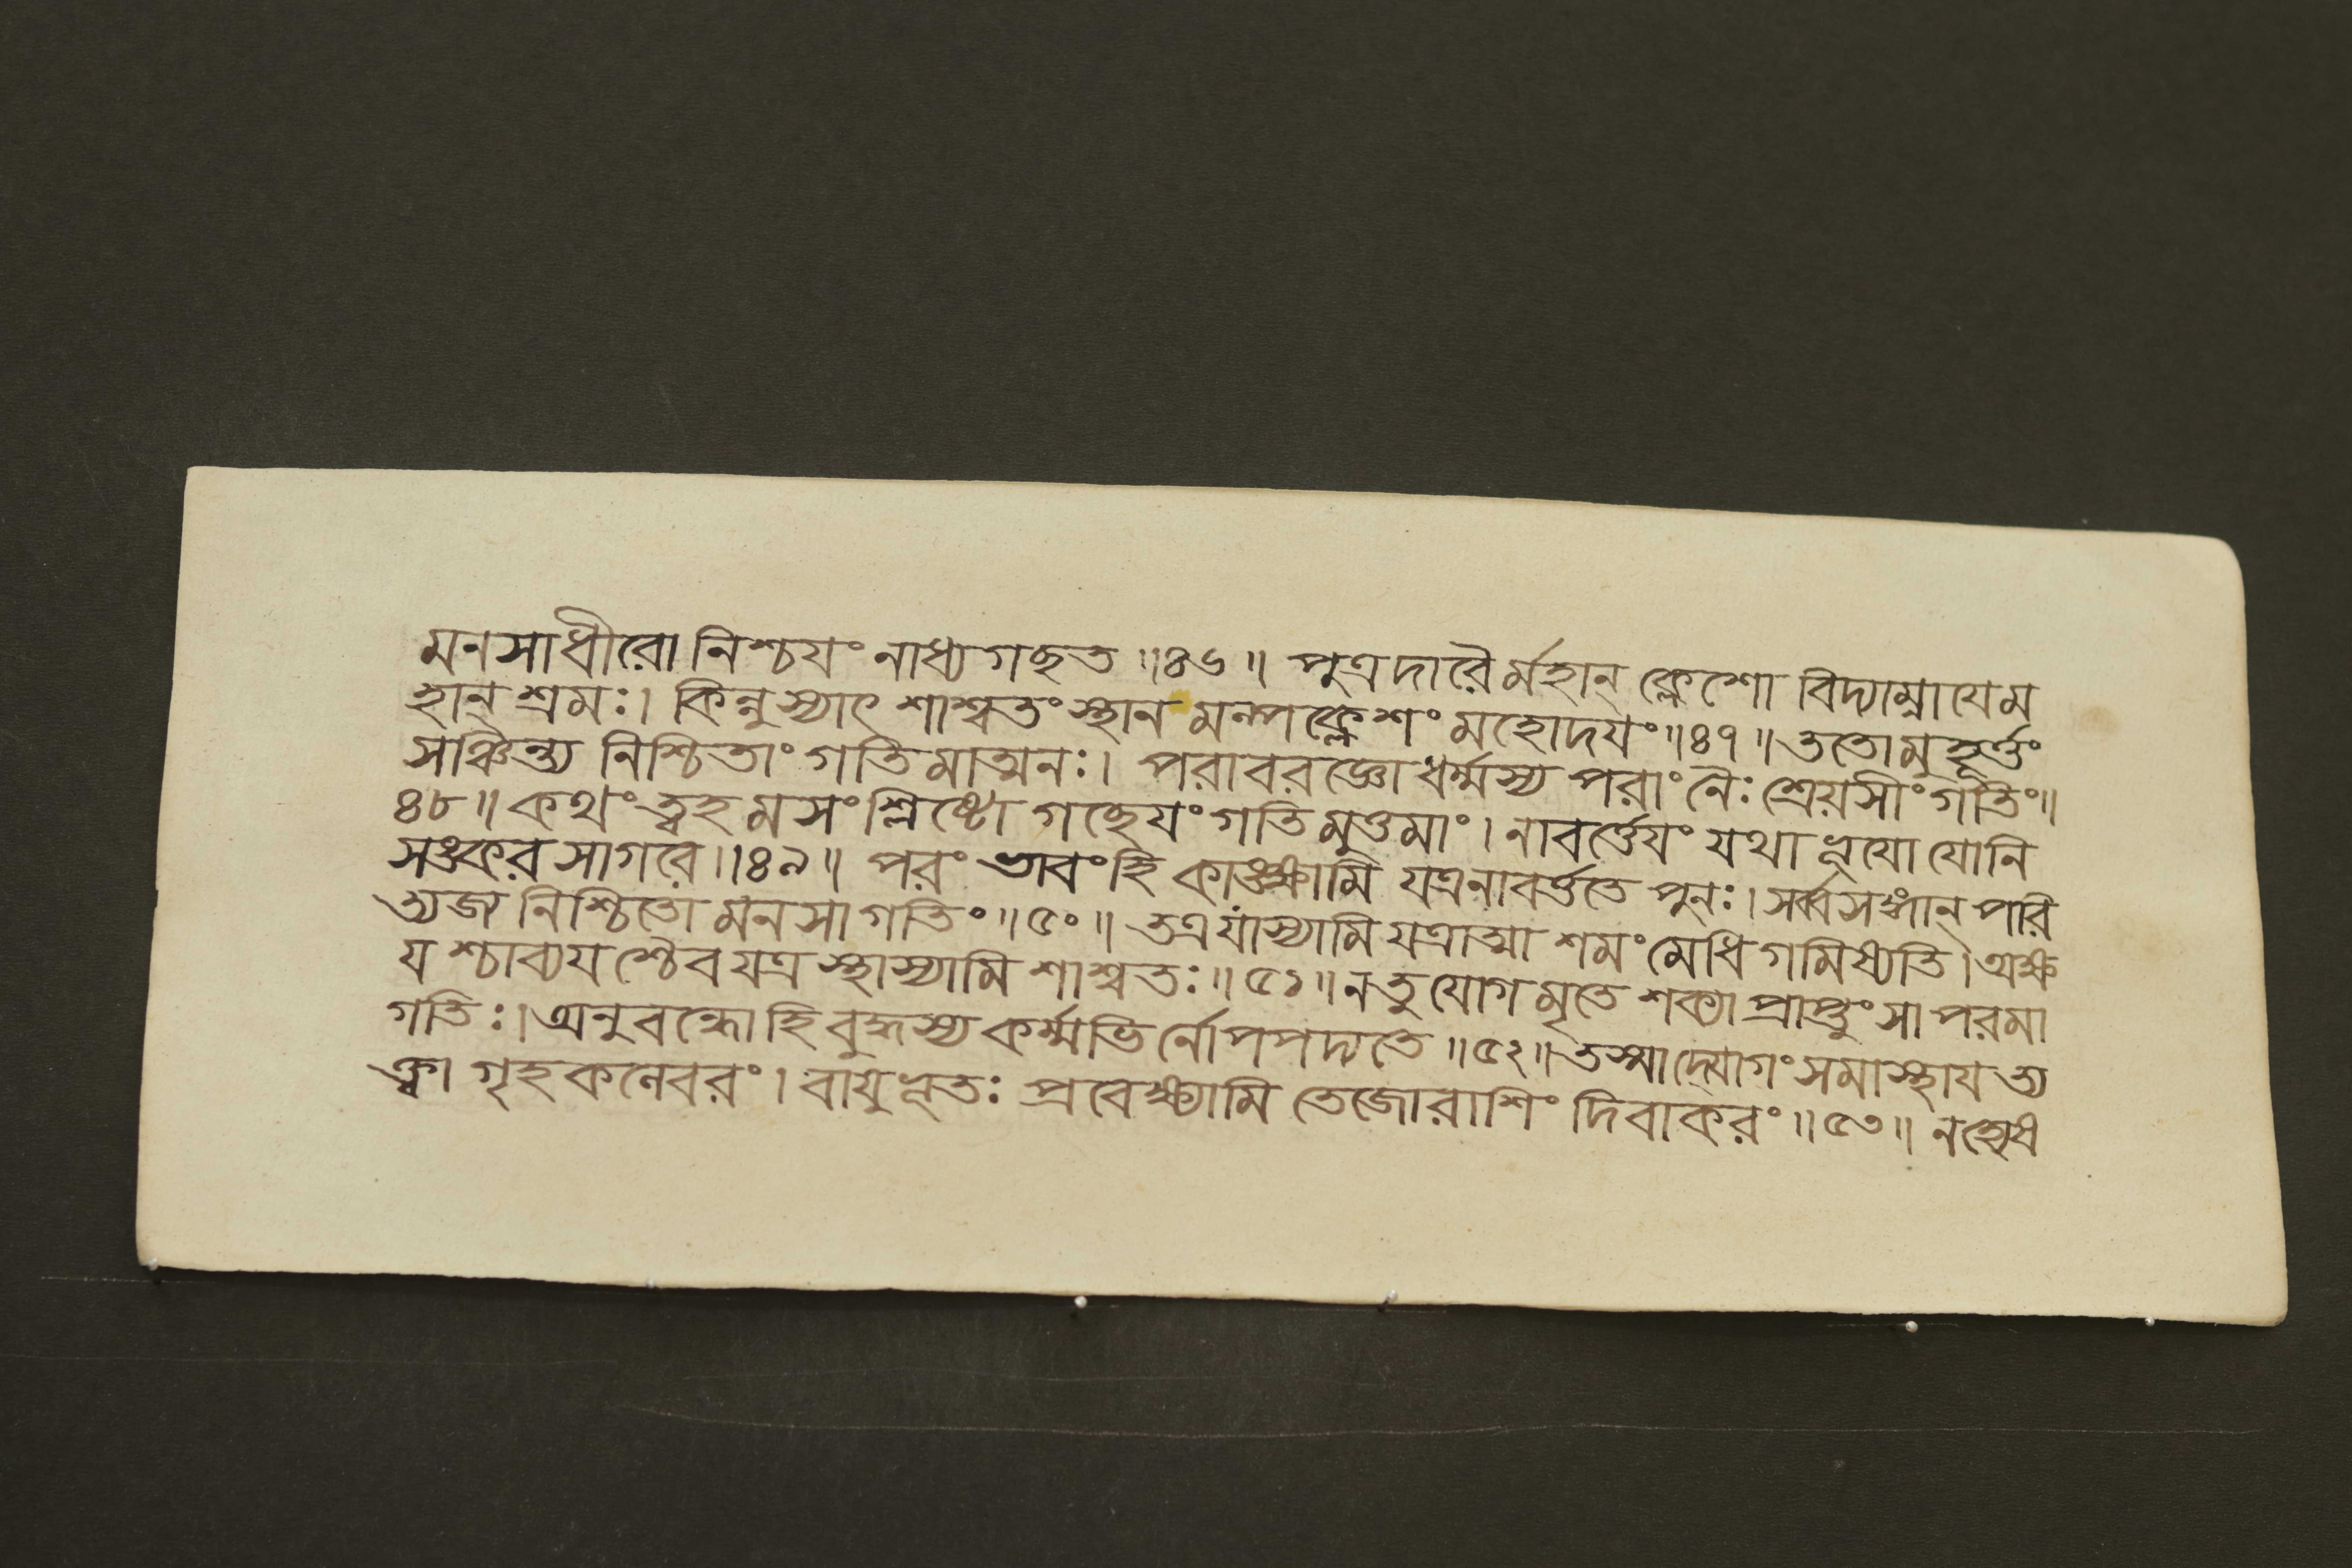 মনসাধীরো নিশ্চযং নাধ্যগছত ॥৪৬॥ পুত্রদারৈর্মহান্ ক্লেশো বিদ্যাম্নাযেম
হান্ শ্রমঃ। কিন্নুস্যাৎ শাশ্বতং স্থানমল্পক্লেশং মহোদযং॥৪৭॥ ততোমুহূর্ত্তং
সঞ্চিন্ত্য নিশ্চিতাং গতিমাত্মনঃ। পরাবরজ্ঞো ধর্ম্মস্য পরাং নৈঃশ্রেয়সীং গতিং॥
৪৮॥ কথং ত্বহমসংশ্লিষ্টো গচ্ছেযং গতিমুত্তমাং। নাবর্ত্তেযং যথা ভূযো যোনি
সঙ্করসাগরে॥৪৯॥ পরং ভাবংহি কাঙ্ক্ষামি যত্রনাবর্ত্ততে পুনঃ। সর্ব্বসঙ্গান্ পরি
ত্যজ নিশ্চিতো মনসা গতিং॥৫০॥ তত্রযাস্যামি যত্রাত্মা শমং মেধিগমিষ্যতি। অক্ষ
যশ্চাব্যযশ্চৈব যত্র স্থাস্যামি শাশ্বতঃ॥৫১॥ নতু যোগমৃতে শক্যা প্রাপ্তুং সা পরমা
গতিঃ। অনুবন্ধোহি বুদ্ধস্য কর্ম্মভির্নোপপদ্যতে॥৫২॥ তস্মাদ্যোগং সমাস্থায ত্য
ক্ত্বা গৃহকলেবরং। বাযুভূতঃ প্রবেক্ষ্যামি তেজোরাশিং দিবাকরং॥৫৩॥ নহ্যেষ